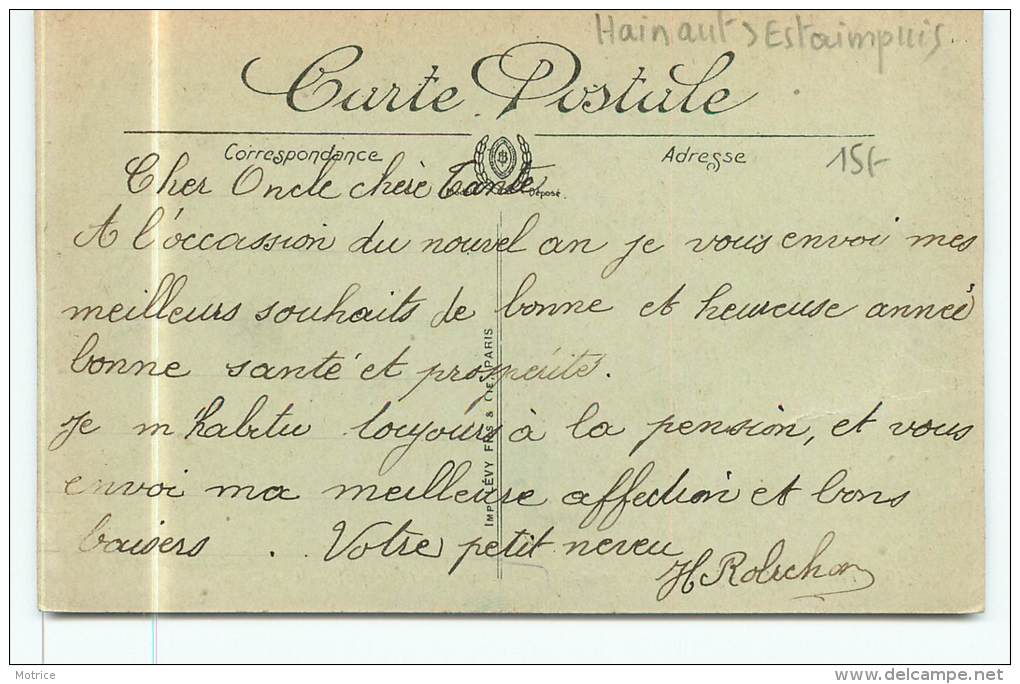 Hainaut > Estaimpuis
Carte Postale
Correspondance
Adresse
15f
Cher Oncle chère Tante
Déposé.
A l'occassion du nouvel an je vous envoi mes
meilleurs souhaits de bonne et heureuse année
bonne santé et prospérité.
Je m'habitu toujours à la pension, et vous
envoi ma meilleure affection et bons
baisers. Votre petit neveu
IMP. LÉVY FILS & CIE, PARIS
Motrice
delcampe.net